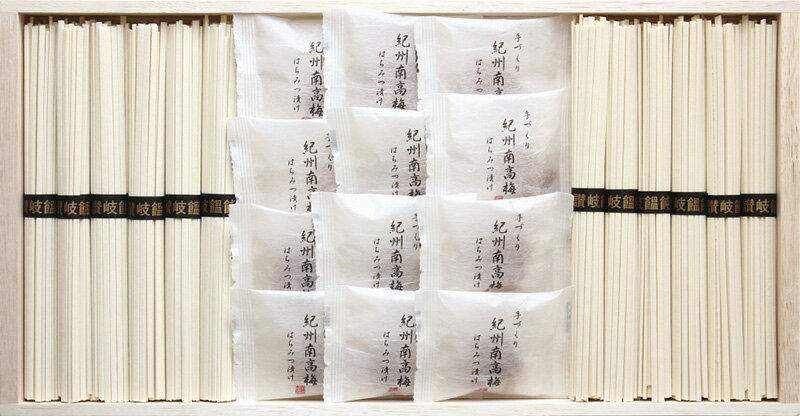 讃岐饂
讃岐饂
讃岐饂
讃岐饂
讃岐饂
讃岐饂
紀州南高梅
はちみつ漬け
紀州南高梅
はちみつ漬け
手づくり
紀州南高梅
はちみつ漬け
手づくり
紀州南高梅
はちみつ漬け
紀州南高梅
はちみつ漬け
手づくり
紀州南高梅
はちみつ漬け
紀州南高
はちみつ漬け
紀州南高梅
はちみつ漬け
手づくり
紀州南高梅
はちみつ漬け
紀州南高梅
はちみつ漬け
紀州南高梅
はちみつ漬け
手づくり
紀州南高梅
はちみつ漬け
讃岐饂
讃岐饂
讃岐饂
讃岐饂
讃岐饂
讃岐饂